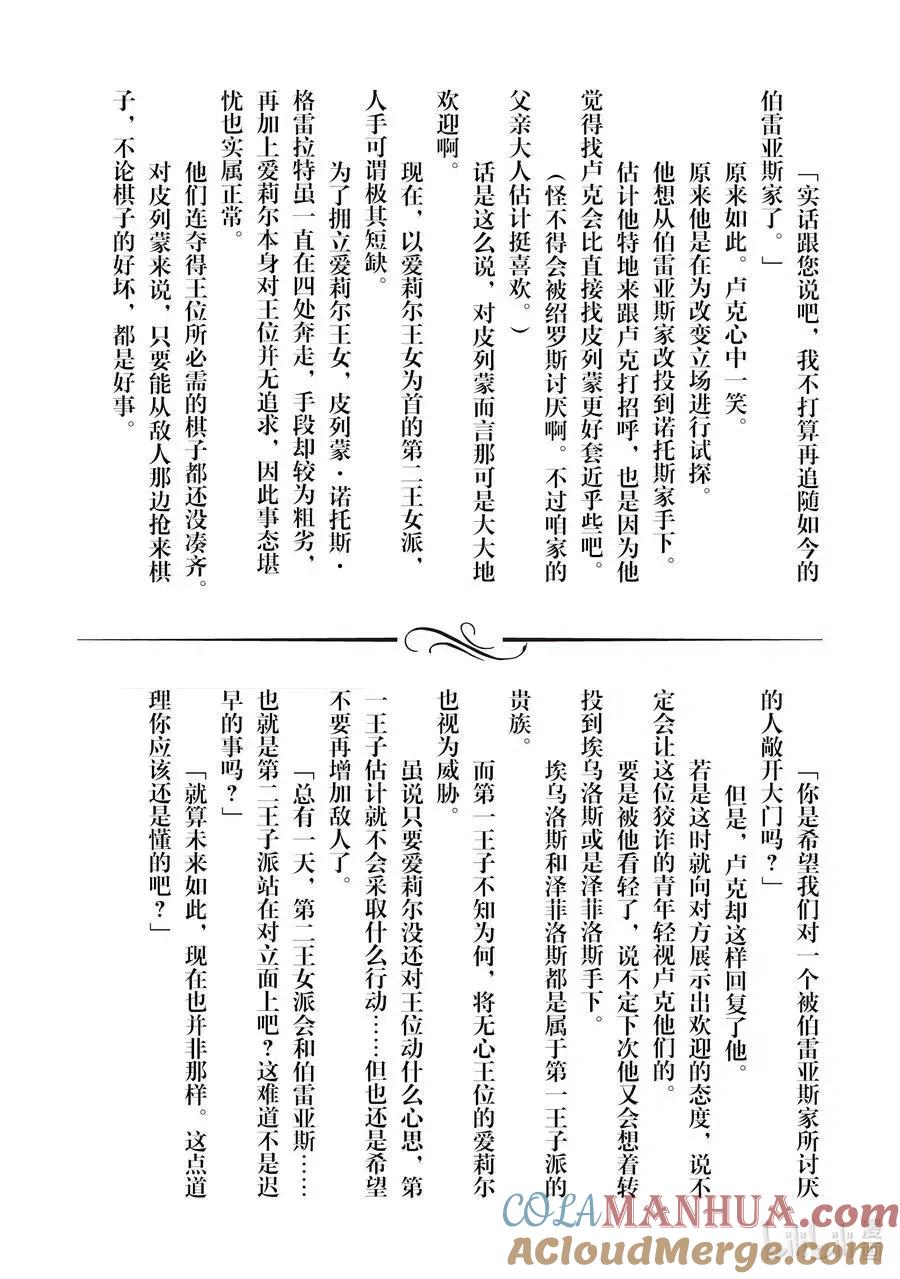 「实话跟您说吧，我不打算再追随如今的
伯雷亚斯家了。」
原来如此。卢克心中一笑。
原来他是在为改变立场进行试探。
他想从伯雷亚斯家改投到诺托斯家手下。
估计他特地来跟卢克打招呼，也是因为他
觉得找卢克会比直接找皮列蒙更好套近乎些吧。
（怪不得会被绍罗斯讨厌啊。不过咱家的
父亲大人估计挺喜欢。）
话是这么说，对皮列蒙而言那可是大大地
欢迎啊。
现在，以爱莉尔王女为首的第二王女派，
人手可谓极其短缺。
为了拥立爱莉尔王女，皮列蒙·诺托斯·
格雷拉特虽一直在四处奔走，手段却较为粗劣，
再加上爱莉尔本身对王位并无追求，因此事态堪
忧也实属正常。
他们连夺得王位所必需的棋子都还没凑齐。
对皮列蒙来说，只要能从敌人那边抢来棋
子，不论棋子的好坏，都是好事。
「你是希望我们对一个被伯雷亚斯家所讨厌
的人敞开大门吗？」
但是，卢克却这样回复了他。
若是这时就向对方展示出欢迎的态度，说不
定会让这位狡诈的青年轻视卢克他们的。
要是被他看轻了，说不定下次他又会想着转
投到埃乌洛斯或是泽菲洛斯手下。
埃乌洛斯和泽菲洛斯都是属于第一王子派的
贵族。
而第一王子不知为何，将无心王位的爱莉尔
也视为威胁。
虽说只要爱莉尔没还对王位动什么心思，第
一王子估计就不会采取什么行动……但也还是希望
不要再增加敌人了。
「总有一天，第二王女派会和伯雷亚斯……
也就是第二王子派站在对立面上吧？这难道不是迟
早的事吗？」
「就算未来如此，现在也并非那样。这点道
理你应该还是懂的吧？」
COLAMANHUA.COM
ACloudMerge.com